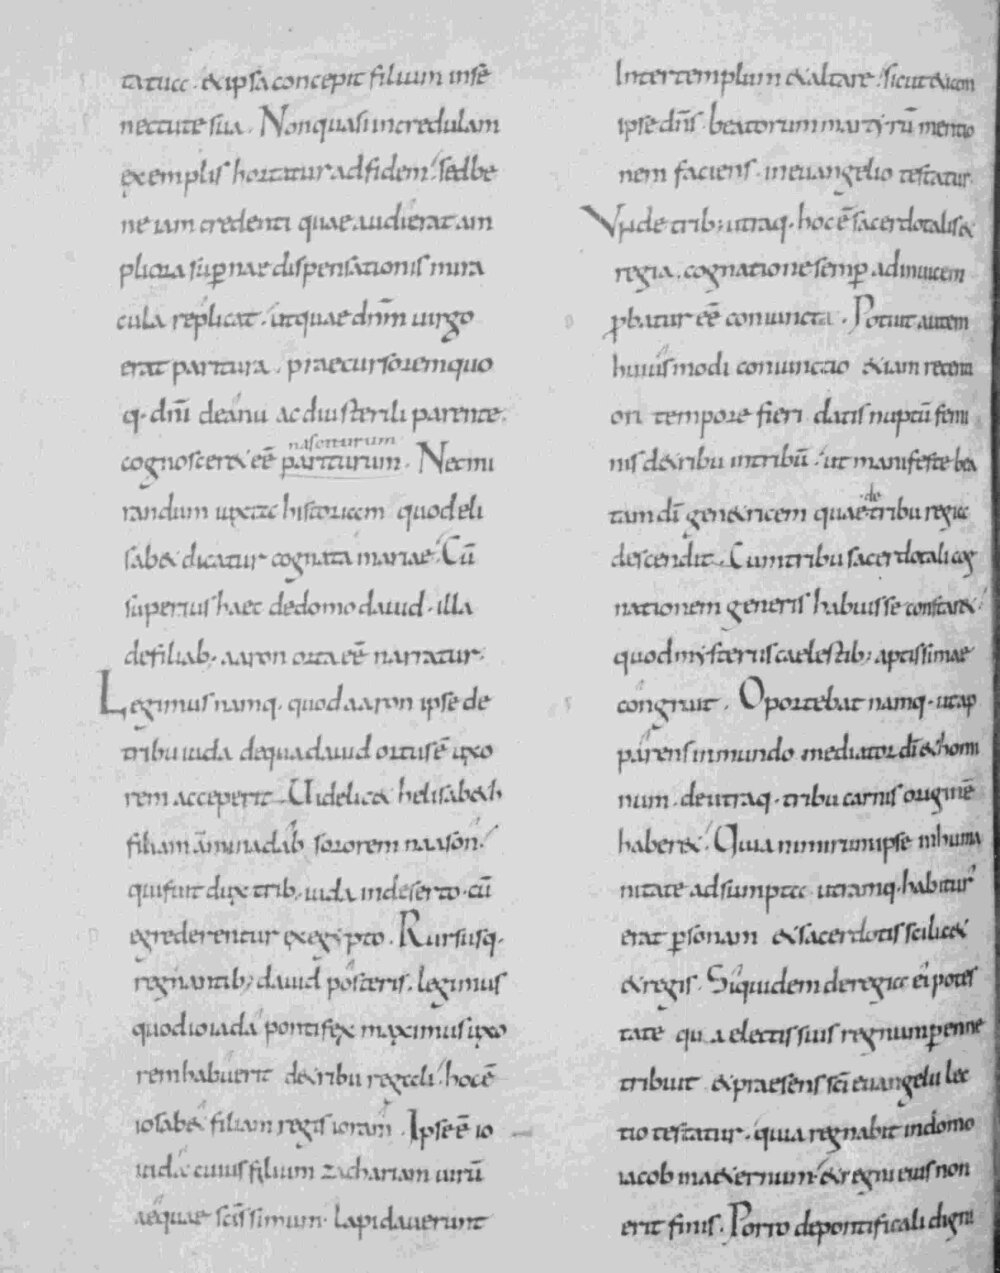 tatucc. & ipsa concepit filium insē
nectute sua. Non quasi incredulam
exemplis hortatur ad fidem. sed be
ne iam credenti quae audierat am
pliora supnae dispensationis mira
cula replicat. ut quae dnm uirgo
erat paritura. praecursorem quo
q. dni de anu ac diu sterili parente.
nasciturum
cognoscer& eē pariturum. Nec mi
randum uxta historicem quod eli
sab& dicatur cognata mariae. Cū
superius haec de domo dauid. illa
de filiab. aaron orta eē narratur.
Legimus namq. quod aaron ipse de
tribu iuda de qua dauid ortus ē uxo
rem acceperit. Uidelic& helisab&h
filiam aminadab sororem naason.
qui fuit dux trib. iuda in deserto. cū
egrederentur ex egypto. Rursusq.
regnantib; dauid posteris. legimus
quod ioiada pontifex maximus uxo
rem habuerit de tribu regali. hoc ē
iosab& filiam regis ioram. Ipse ē io
iada cuius filium zachariam uirū
aeque scissimum. lapidauerunt
Inter templum & altare. sicut & iam
ipse dns. beatorum martyrū mentio
nem faciens. in euangelio testatur.
Unde trib; utraq. hoc ē sacerdotalis &
regia. cognatione semp adinuicem
pbatur eē coniuncta. Potuit autem
huiusmodi coniunctio &iam recenti
ori tempore fieri datis nuptū femi
nis de tribu in tribū. ut manifeste bea
de
tam di gen&ricem quae tribu regia
descendit. Cum tribu sacerdotali cog
nationem generis habuisse constar&.
quod mysteriis caelestib; aptissimae
congruit. Oportebat namq. ut ap
parens in mundo mediator di & homi
num. de utraq. tribu carnis originē
haber&. Quia nimirum ipse in huma
nitate adsumpta utramq. habitur
erat psonam & sacerdotis scilic&
& regis. Siquidem de regia ei potes
tate qua electis suis regnum penne
tribuit & praesens sci euangelii lec
tio testatur. quia regnabit in domo
iacob in aeternum. & regni eius non
erit finis. Porro de pontificali digni